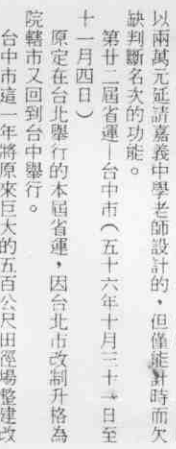 以兩萬元延請嘉義中學老師設計的，但僅能計時而欠
缺判斷名次的功能。
第廿二屆省運—台中市（五十六年十月三十一日至
十一月四日）
原定在台北舉行的本屆省運，因台北市改制升格為
院轄市又回到台中舉行。
台中市這一年將原來巨大的五百公尺田徑場整建改